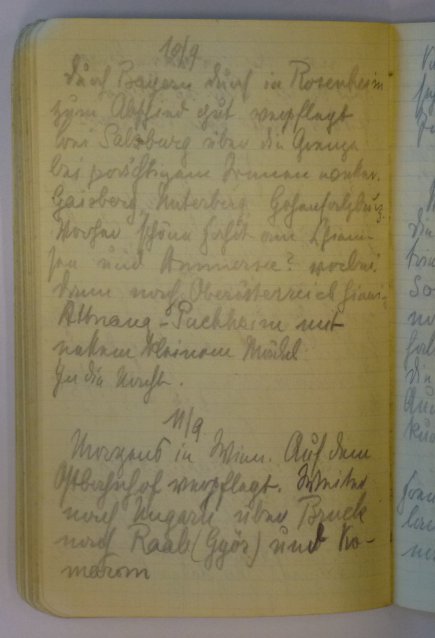 10/9
durch Bayern durch in Rosenheim
zum Abschied gut verpflegt
bei Salzburg über die Grenze
bei prächtigem
Gaisberg, Unterberg Hohensalzburg
Vorher schöne Fahrt am Chiem-
see und Ammersee? vorbei
dann nach Oberösterreich hinein
Attnang-Puchheim mit
nettem kleinem Mädel
In die Nacht.
11/9.
Morgens in Wien. Auf dem
Ostbahnhof verpflegt. Weiter
nach Ungarn über Bruck
nach Raab (Györ) und Ko-
marom